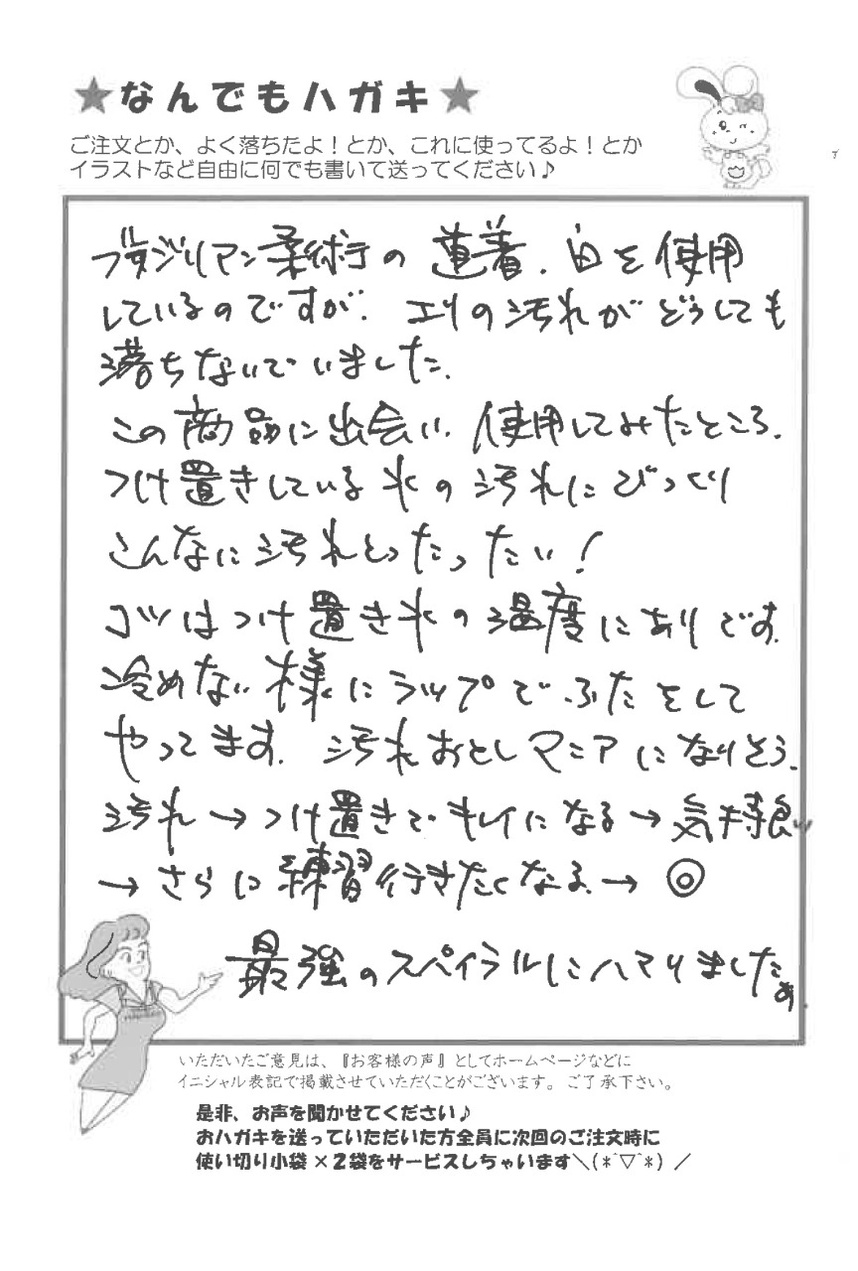 ★なんでもハガキ★
ご注文とか、よく落ちたよ！とか、これに使ってるよ！とか
イラストなど自由に何でも書いて送ってください♪
ブラジリアン柔術の道着、白を使用
しているのですが、エリの汚れがどうしても
落ちないでいました。
この商品に出会い、使用してみたところ、
つけ置きしている水の汚れにびっくり
こんなに汚れとったったい！
コツはつけ置き水の温度にありです。
冷めない様にラップでふたをして
やってます。汚れおとしマニアになりそう。
汚れ→つけ置きでキレイになる→気持良い
→さらに練習行きたくなる→◎
最強のスパイラルにハマりましたぁ。
いただいたご意見は、『お客様の声』としてホームページなどに
イニシャル表記で掲載させていただくことがございます。ご了承下さい。
是非、お声を聞かせてください♪
おハガキを送っていただいた方全員に次回のご注文時に
使い切り小袋×２袋をサービスしちゃいます＼(*´▽`*)／